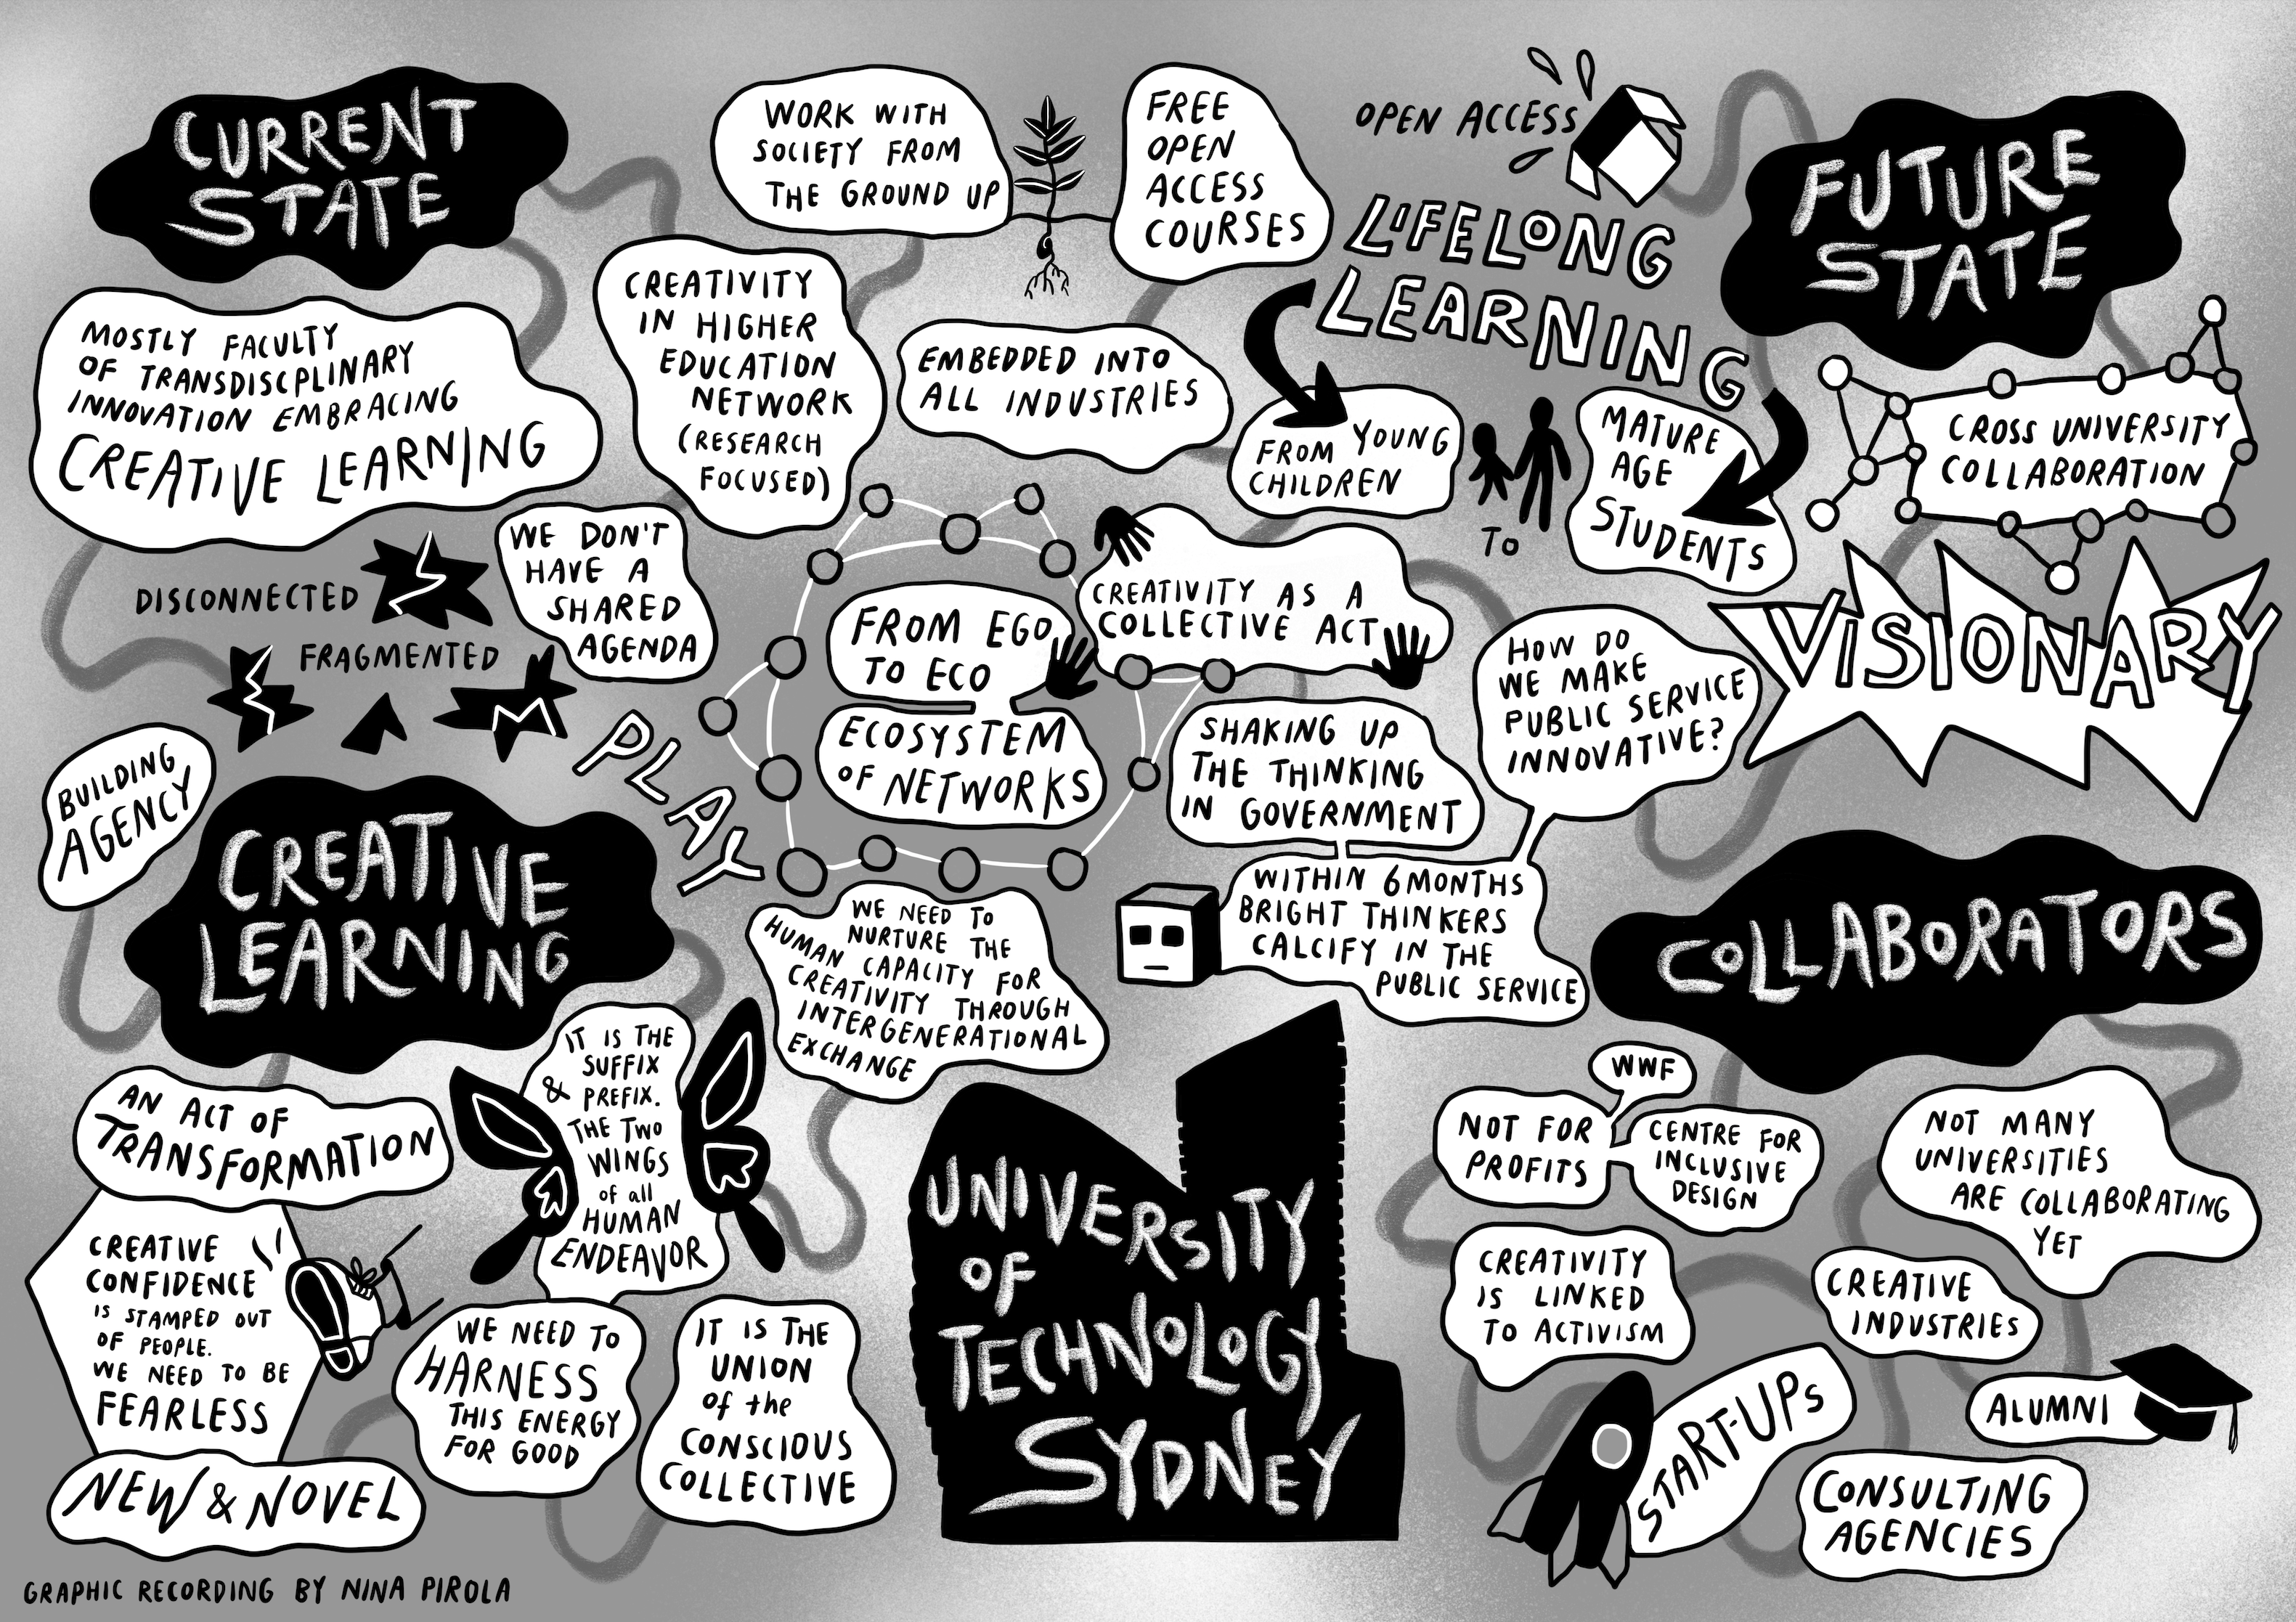 CURRENT
STATE
MOSTLY FACULTY
OF TRANSDISCPLINARY
INNOVATION EMBRACING
CREATIVE LEARNING
DISCONNECTED
FRAGMENTED
WE DON'T
HAVE A
SHARED
AGENDA
CREATIVITY
IN HIGHER
EDUCATION
NETWORK
(RESEARCH
FOCUSED)
WORK WITH
SOCIETY FROM
THE GROUND UP
FREE
OPEN
ACCESS
COURSES
OPEN ACCESS
LIFELONG
LEARNING
EMBEDDED INTO
ALL INDUSTRIES
FROM YOUNG
CHILDREN
TO
MATURE
AGE
STUDENTS
FUTURE
STATE
CROSS UNIVERSITY
COLLABORATION
VISIONARY
FROM EGO
TO ECO
ECOSYSTEM
OF NETWORKS
CREATIVITY AS A
COLLECTIVE ACT
SHAKING UP
THE THINKING
IN GOVERNMENT
HOW DO
WE MAKE
PUBLIC SERVICE
INNOVATIVE?
WITHIN 6 MONTHS
BRIGHT THINKERS
CALCIFY IN THE
PUBLIC SERVICE
PLAY
BUILDING
AGENCY
CREATIVE
LEARNING
WE NEED TO
NURTURE THE
HUMAN CAPACITY FOR
CREATIVITY THROUGH
INTERGENERATIONAL
EXCHANGE
AN ACT OF
TRANSFORMATION
CREATIVE
CONFIDENCE
IS STAMPED OUT
OF PEOPLE.
WE NEED TO BE
FEARLESS
NEW & NOVEL
IT IS THE
SUFFIX
& PREFIX.
THE TWO
WINGS
of all
HUMAN
ENDEAVOR
WE NEED TO
HARNESS
THIS ENERGY
FOR GOOD
IT IS THE
UNION
of the
CONSCIOUS
COLLECTIVE
UNIVERSITY
OF
TECHNOLOGY
SYDNEY
COLLABORATORS
WWF
NOT FOR
PROFITS
CENTRE FOR
INCLUSIVE
DESIGN
NOT MANY
UNIVERSITIES
ARE COLLABORATING
YET
CREATIVITY
IS LINKED
TO ACTIVISM
CREATIVE
INDUSTRIES
START-UPS
ALUMNI
CONSULTING
AGENCIES
GRAPHIC RECORDING BY NINA PIROLA